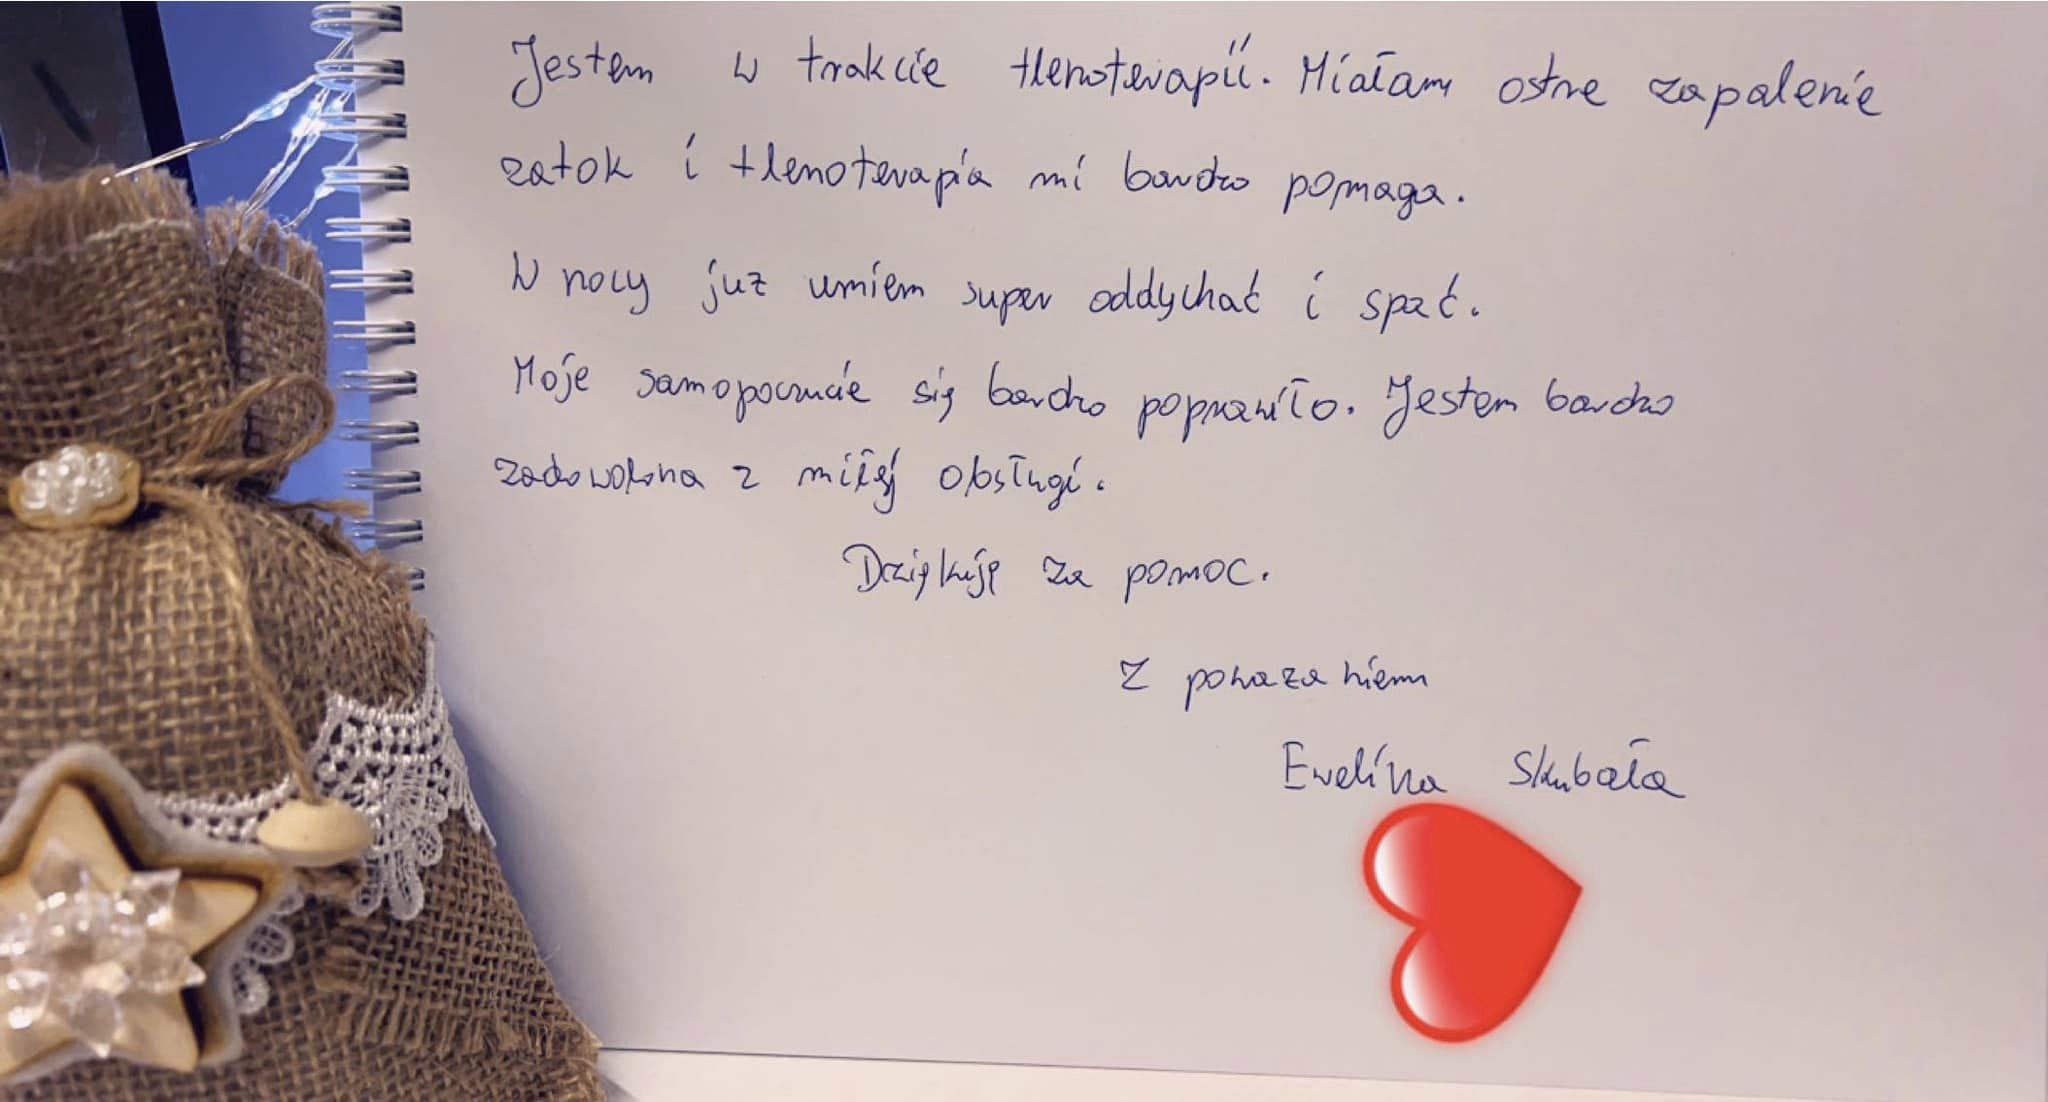 Jestem w trakcie tlenoterapii. Miałam ostre zapalenie
zatok i tlenoterapia mi bardzo pomaga.
W nocy już umiem super oddychać i spać.
Moje samopoczucie się bardzo poprawiło. Jestem bardzo
zadowolona z miłej obsługi.
Dziękuję za pomoc.
Z poważaniem
Ewelina Skubała